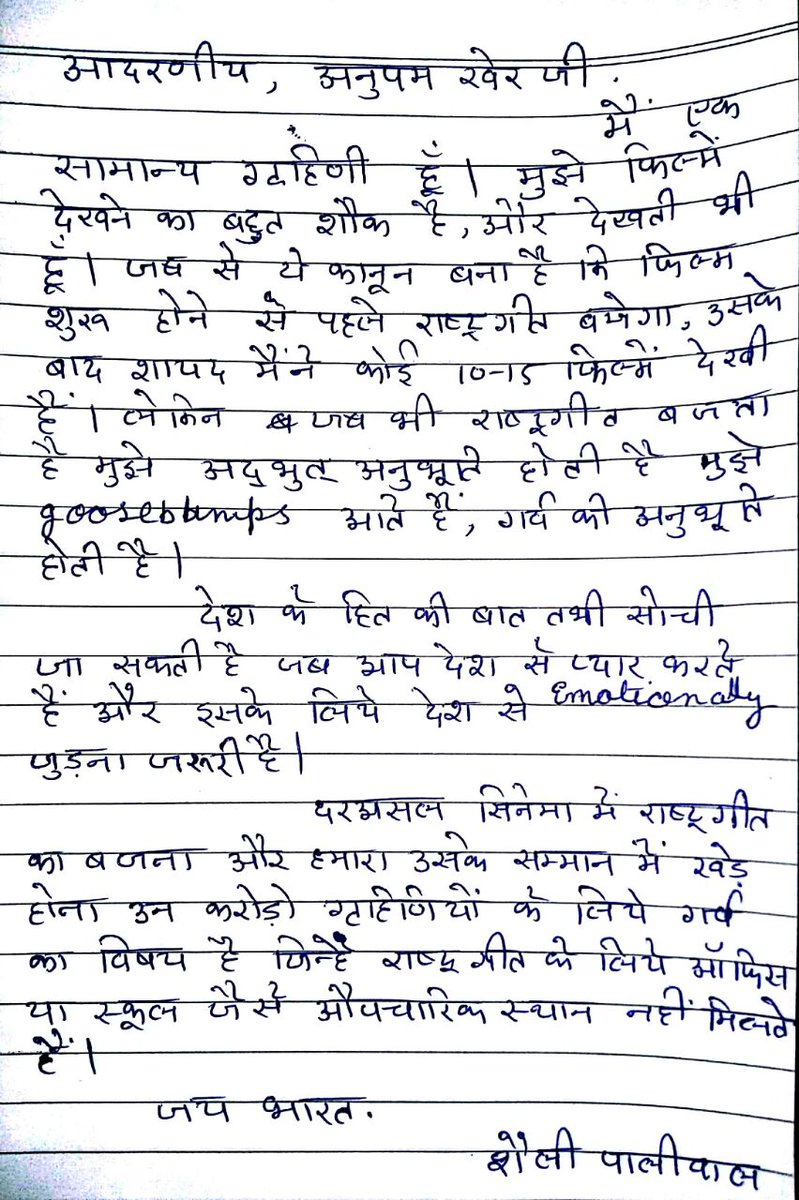 आदरणीय, अनुपम खेर जी.
मैं एक
सामान्य गृहिणी हूँ। मुझे फिल्में
देखने का बहुत शौक है, और देखती भी
हूँ। जब से ये कानून बना है कि फिल्म
शुरू होने से पहले राष्ट्रगीत बजेगा, उसके
बाद शायद मैंने कोई 10-15 फिल्में देखी
हैं। लेकिन जब भी राष्ट्रगीत बजता
है मुझे अद्भुत अनुभूति होती है मुझे
goosebumps आते हैं, गर्व की अनुभूति
होती है।
देश के हित की बात तभी सोची
जा सकती है जब आप देश से प्यार करते
हैं और इसके लिये देश से Emotionally
जुड़ना जरूरी है।
दरअसल सिनेमा में राष्ट्रगीत
का बजना और हमारा उसके सम्मान में खड़े
होना उन करोड़ो गृहिणियों के लिये गर्व
का विषय है जिन्हें राष्ट्रगीत के लिये ऑफिस
या स्कूल जैसे औपचारिक स्थान नहीं मिलते
हैं।
जय भारत.
शैली पालीवाल